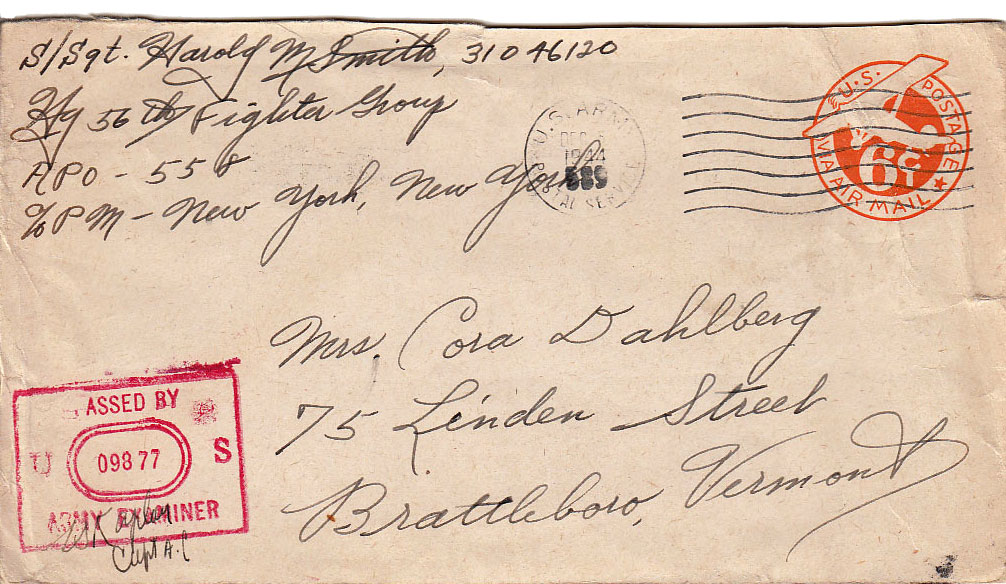 S/Sgt. Harold M Smith, 31046120
Hq 56th Fighter Group
APO - 558
c/o PM - New York, New York
U.S. ARMY
DEC
1944
589
POSTAL SERVICE
U.S. POSTAGE
6¢
VIA AIR MAIL
Mrs. Cora Dahlberg
75 Linden Street
Brattleboro, Vermont
ASSED BY
U 09877 S
ARMY EXAMINER
Capt A.C